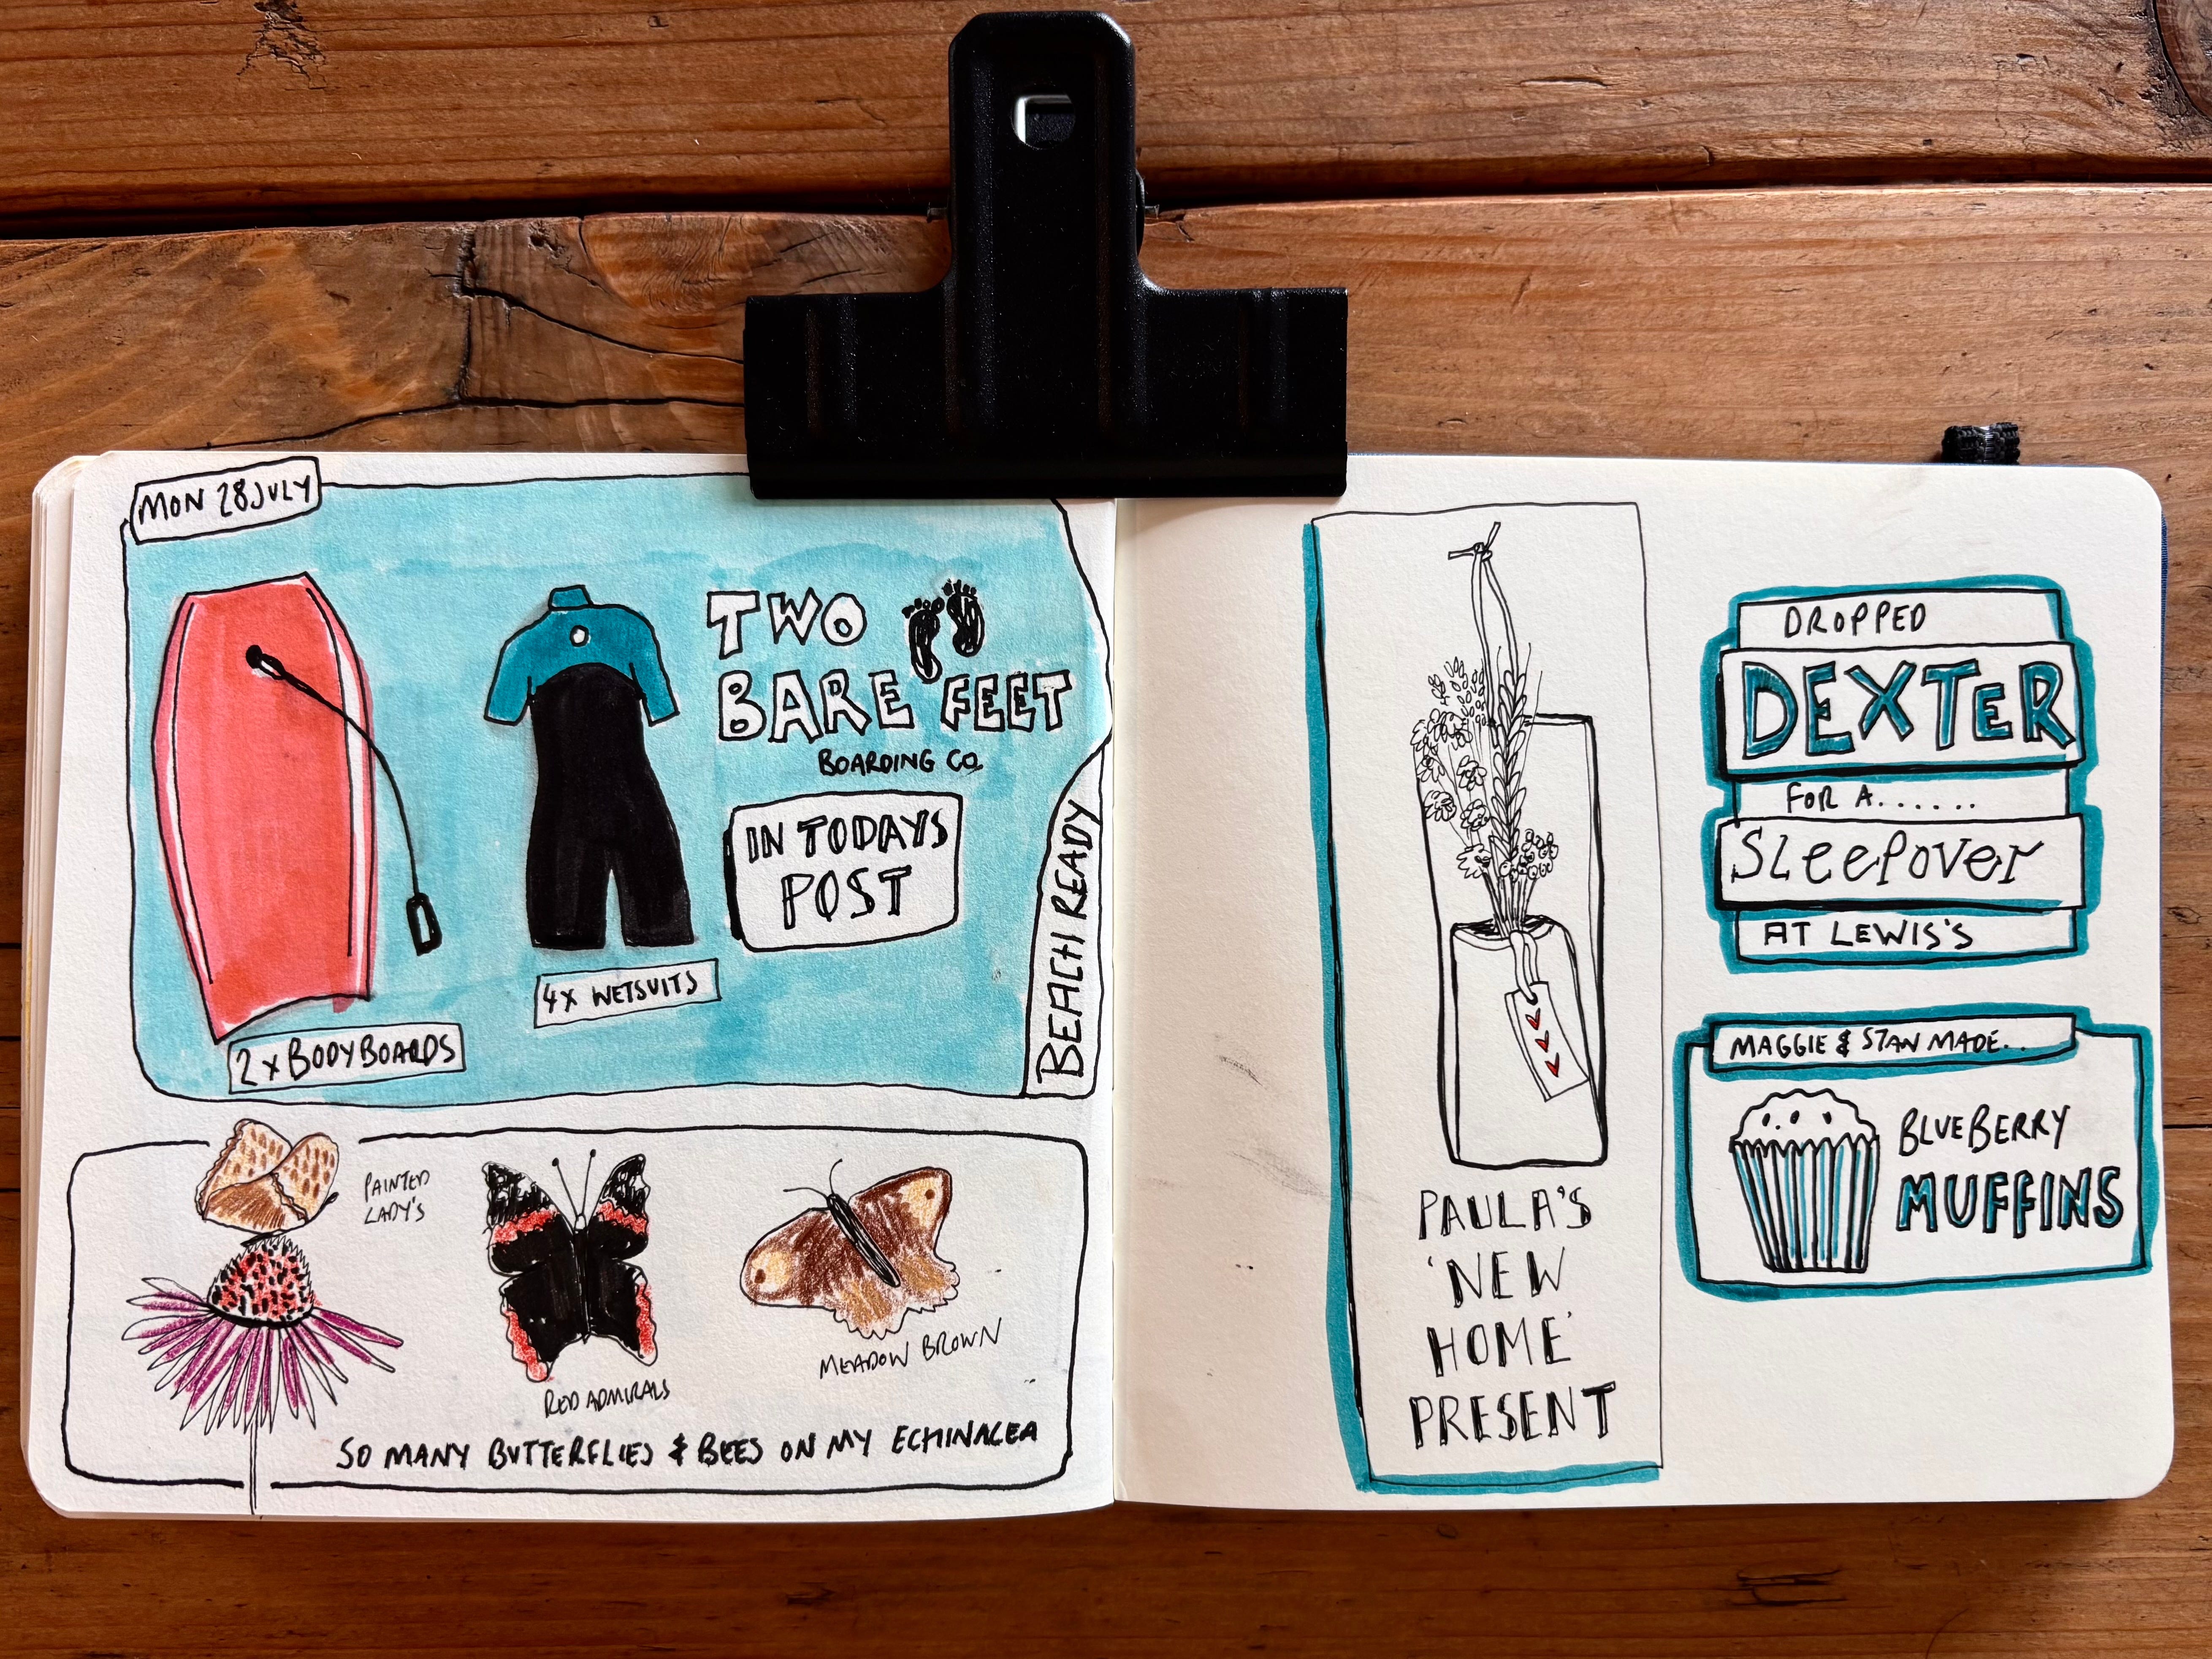 MON 28 JULY
TWO
BARE FEET
BOARDING CO.
IN TODAYS
POST
BEACH READY
4X WETSUITS
2 X BODYBOARDS
PAINTED
LADY'S
RED ADMIRALS
MEADOW BROWN
SO MANY BUTTERFLIES & BEES ON MY ECHINACEA
PAULA'S
'NEW
HOME'
PRESENT
DROPPED
DEXTER
FOR A......
SLeePoveR
AT LEWIS'S
MAGGIE & STAN MADE..
BLUEBERRY
MUFFINS